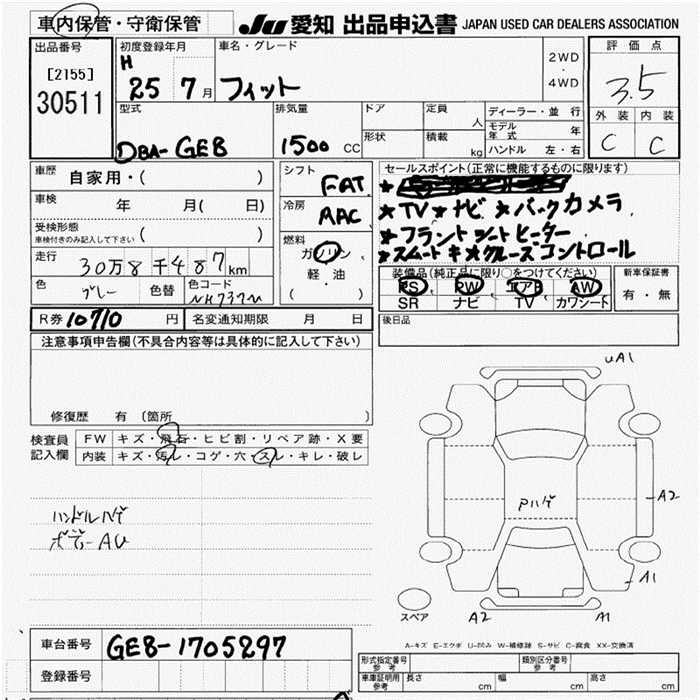 車内保管・守衛保管
JU 愛知 出品申込書 JAPAN USED CAR DEALERS ASSOCIATION
出品番号
[2155]
30511
初度登録年月
H
25 7月
車名・グレード
フィット
2WD
・
4WD
評価点
3.5
外装 内装
C C
型式
DBA-GE8
排気量
1500 CC
ドア
形状
定員
人
積載
kg
ディーラー・並行
モデル年式 年
ハンドル 左・右
車歴
自家用・( )
車検
年 月( 日)
受検形態
車検付きのみ記入して下さい ( )
走行
30万8千487km
色
グレー
色替
色コード
NH737M
シフト
FAT
冷房
AAC
燃料
ガソリン
軽・油
( )
セールスポイント(正常に機能するものに限ります)
★TV★ナビ★バックカメラ
★フラントシートヒーター
★スムートキ★クルーズコントロール
装備品(純正品に限り○をつけてください)
PS PW エアB AW
SR ナビ TV カワシート
新車保証書
有・無
R券 10710 円
名変通知期限 月 日
後日品
注意事項申告欄(不具合内容等は具体的に記入して下さい)
修復歴 有 (箇所 )
検査員
記入欄
FW キズ・飛石・ヒビ割・リペア跡・X要
内装 キズ・汚レ・コゲ・穴・スレ・キレ・破レ
ハンドルハゲ
ボデーAU
uA1
Pハゲ
A2
A1
スペア
A2
A1
A-キズ E-エクボ U-凹み W-補修跡 S-サビ C-腐食 XX-交換済
車台番号
GE8-1705297
登録番号
形式指定番号
参考
類別区分番号
参考
車庫証明用
参考
長さ cm
幅 cm
高さ cm